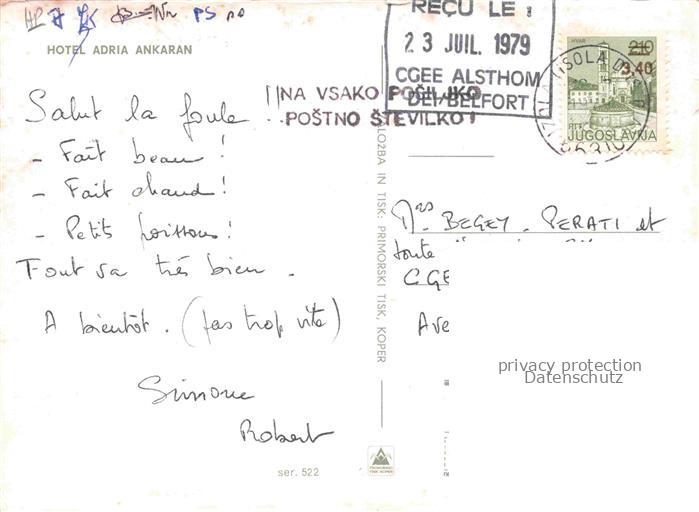 HOTEL ADRIA ANKARAN
Salut la foule
- Fait beau !
- Fait chaud !
- Petits poissons !
Tout va très bien .
A bientôt . (pas trop vite)
Simone
Robert
ser. 522
NA VSAKO POŠILJKO
POŠTNO ŠTEVILKO !
REÇU LE :
2 3 JUIL. 1979
CGEE ALSTHOM
DEI/BELFORT
HVAR
2.10
3.40
JUGOSLAVIJA
ZALOŽBA IN TISK: PRIMORSKI TISK, KOPER
Mrs BEGEY . PERATI et
toute
CGE
Ave
privacy protection
Datenschutz